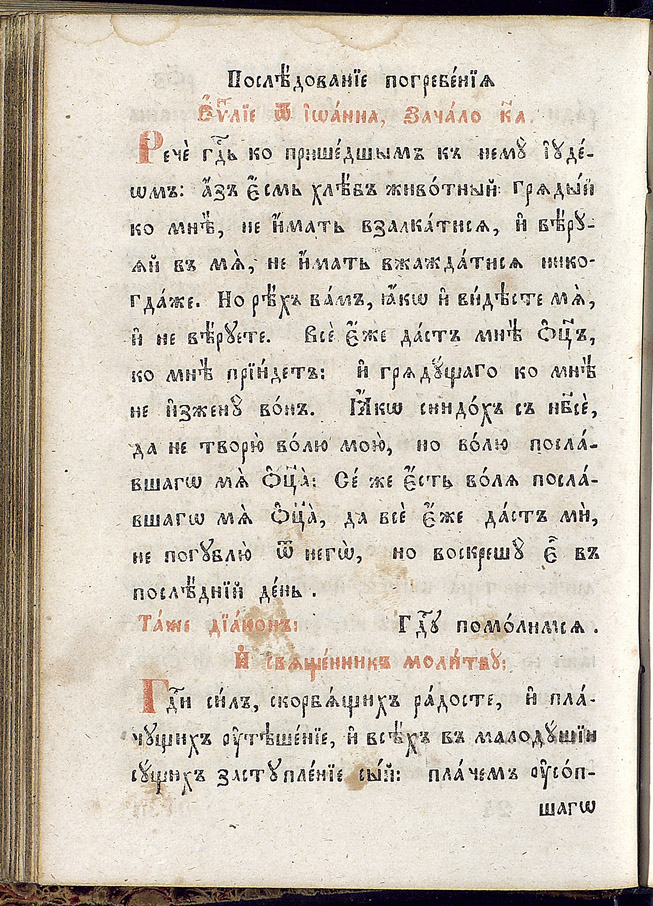 Послѣ́дованїе погребе́нїѧ
Єѵⷢ҇лїе ѿ І҆ѡа́нна, Зача́ло к҃а.
Речѐ гдⷭ҇ь ко прише́дшымъ къ немꙋ̀ і҆ꙋде́-
ѡмъ: а҆́зъ є҆́смь хлѣ́бъ живо́тный: грѧды́й
ко мнѣ̀, не и҆́мать взалка́тисѧ, и҆ вѣ́рꙋ-
ѧй въ мѧ̀, не и҆́мать вжажда́тисѧ нико-
гда́же. Но рѣ́хъ ва́мъ, ꙗ҆́кѡ и҆ ви́дѣсте мѧ̀,
и҆ не вѣ́рꙋете. Всѐ є҆́же да́стъ мнѣ̀ ѻ҆ц҃ъ,
ко мнѣ̀ прїи́детъ: и҆ грѧдꙋ́щаго ко мнѣ̀
не и҆зженꙋ̀ во́нъ. Ꙗ҆́кѡ снидо́хъ съ нб҃сѐ,
да не творю̀ во́лю мою̀, но во́лю посла́-
вшагѡ мѧ̀ ѻ҆ц҃а̀: Се́ же є҆́сть во́лѧ посла́-
вшагѡ мѧ̀ ѻ҆ц҃а̀, да всѐ є҆́же да́стъ мѝ,
не погꙋблю̀ ѿ негѡ̀, но воскрешꙋ̀ є҆̀ въ
послѣ́днїй де́нь.
Та́же дїа́конъ: Гдⷭ҇ꙋ помо́лимсѧ.
И҆ свѧще́нникъ моли́твꙋ:
Гдⷭ҇и си́лъ, скорбѧ́щихъ ра́досте, и҆ пла́-
чꙋщихъ ᲂу҆тѣше́нїе, и҆ всѣ́хъ въ малодꙋ́шїи
сꙋ́щихъ застꙋпле́нїе сы́й: пла́чемъ ᲂу҆со́п-
шагѡ